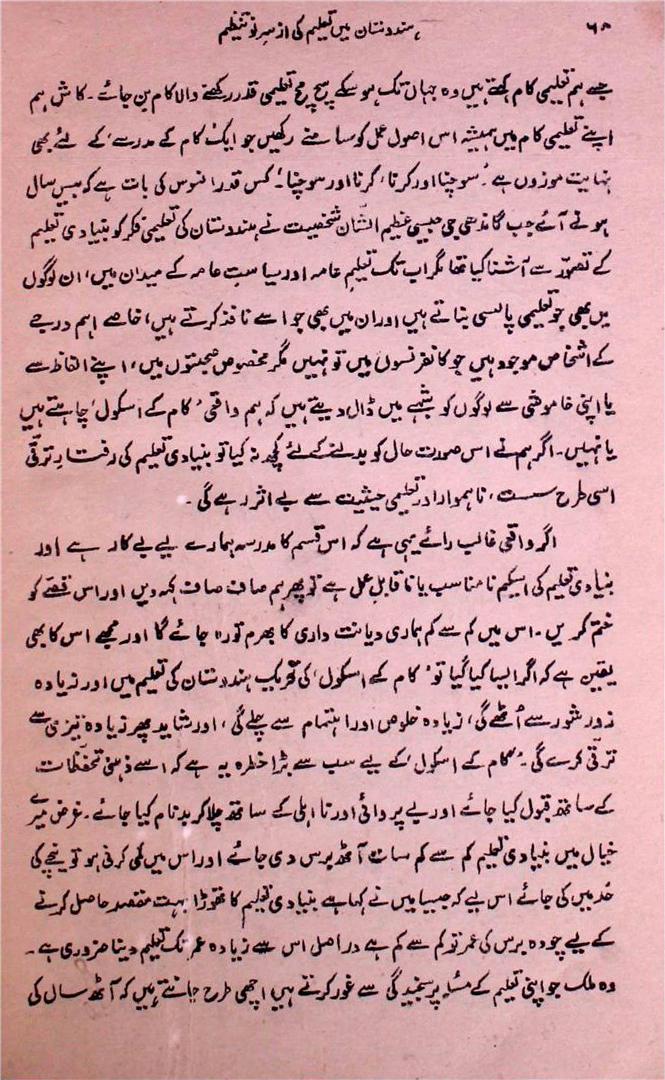 ۶۸
ہندوستان میں تعلیم کی از سرِ نو تنظیم
جسے ہم تعلیمی کام کہتے ہیں وہ جہاں تک ہو سکے سچ مچ تعلیمی قدر رکھنے والا کام بن جائے۔ کاش ہم
اپنے تعلیمی کام میں ہمیشہ اس اصول عمل کو سامنے رکھیں جو ایک کام کے مدرسے، کے لئے بھی
نہایت موزوں ہے 'سوچنا اور کرنا، کرنا اور سوچنا'، کس قدر افسوس کی بات ہے کہ بیس سال
ہونے آئے جب گاندھی جی جیسی عظیم الشان شخصیت نے ہندوستان کی تعلیمی فکر کو بنیادی تعلیم
کے تصوّر سے آشنا کیا تھا مگر اب تک تعلیم عامہ اور سیاست عامہ کے میدان میں، ان لوگوں
میں بھی جو تعلیمی پالسی بناتے ہیں اور ان میں بھی جو اسے نافذ کرتے ہیں، خاصے اہم درجے
کے اشخاص موجود ہیں جو کانفرنسوں میں تو نہیں مگر مخصوص صحبتوں میں، اپنے الفاظ سے
یا اپنی خاموشی سے لوگوں کو شبہے میں ڈال دیتے ہیں کہ ہم واقعی 'کام کے اسکول' چاہتے ہیں
یا نہیں۔ اگر ہم نے اس صورت حال کو بدلنے کے لئے کچھ نہ کیا تو بنیادی تعلیم کی رفتارِ ترقی
اسی طرح سست، ناہموار اور تعلیمی حیثیت سے بے اثر رہے گی۔
اگر واقعی غالب رائے یہی ہے کہ اس قسم کا مدرسہ ہمارے لیے بے کار ہے اور
بنیادی تعلیم کی اسکیم نامناسب یا ناقابلِ عمل ہے تو پھر ہم صاف صاف کہہ دیں اور اس قصّے کو
ختم کریں۔ اس میں کم سے کم ہماری دیانت داری کا بھرم تو رہ جائے گا اور مجھے اس کا بھی
یقین ہے کہ اگر ایسا کیا گیا تو 'کام کے اسکول' کی تحریک ہندوستان کی تعلیم میں اور زیادہ
زور شور سے اُٹھے گی، زیادہ خلوص اور اہتمام سے چلے گی، اور شاید پھر زیادہ تیزی سے
ترقی کرے گی۔ 'کام کے اسکول' کے لیے سب سے بڑا خطرہ یہ ہے کہ اسے ذہنی تحفّظات
کے ساتھ قبول کیا جائے اور بے پروائی اور نااہلی کے ساتھ چلا کر بدنام کیا جائے۔ غرض میرے
خیال میں بنیادی تعلیم کم سے کم سات آٹھ برس دی جائے اور اس میں کمی کرنی ہو تو نیچے کی
حد میں کی جائے اس لیے کہ جیسا میں نے کہا ہے بنیادی تعلیم کا تھوڑا بہت مقصد حاصل کرنے
کے لیے چودہ برس کی عمر تو کم سے کم ہے در اصل اس سے زیادہ عمر تک تعلیم دینا ضروری ہے۔
وہ ملک جو اپنی تعلیم کے مسئلہ پر سنجیدگی سے غور کرتے ہیں اچھی طرح جانتے ہیں کہ آٹھ سال کی